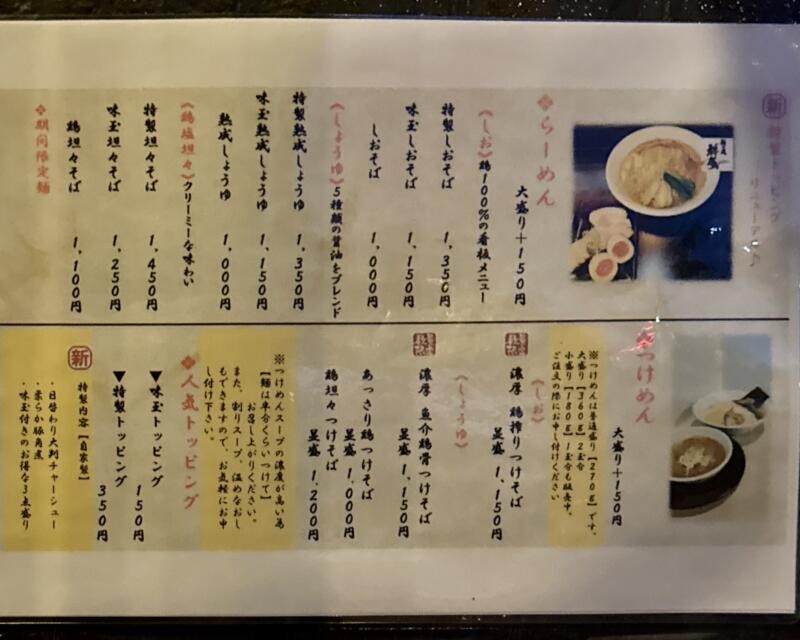 新 特製トッピング
リニューアル♪
らーめん
大盛り+150円
《しお》鶏100%の看板メニュー
特製しおそば 1,350円
味玉しおそば 1,150円
しおそば 1,000円
《しょうゆ》5種類の醤油をブレンド
特製熟成しょうゆ 1,350円
味玉熟成しょうゆ 1,150円
熟成しょうゆ 1,000円
《鶏塩坦々》クリーミーな味わい
特製坦々そば 1,450円
味玉坦々そば 1,250円
鶏坦々そば 1,100円
期間限定麺
つけめん
大盛り+150円
※つけめんは普通盛り【270g】です。
大盛り【360g】2玉分
小盛り【180g】1玉分も販売中。
ご注文の際にお申し付けください
《しお》
濃厚 鶏搾りつけそば
並盛 1,150円
《しょうゆ》
濃厚 魚介鶏骨つけそば
並盛 1,150円
あっさり鶏つけそば
並盛 1,000円
鶏坦々つけそば
並盛 1,200円
※つけめんスープの濃度が高い為
【麺は半分くらいつけて】
お召し上がりください。
また、割りスープ、温めなおし
もできますので、お気軽にお申
し付け下さい。
人気トッピング
▼味玉トッピング
150円
▼特製トッピング
350円
新
特製内容【自家製】
・日替わり大判チャーシュー
・柔らか豚角煮
・味玉付きのお得な3点盛り